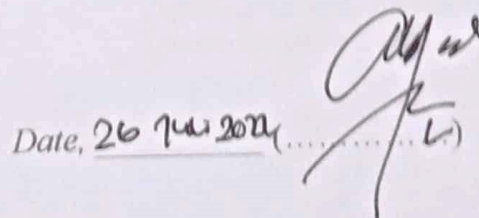 Date, 26 Juli 2024 (..................)